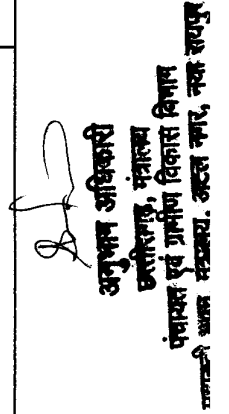 अनुभाग अधिकारी
छत्तीसगढ़, मंत्रालय
पंचायत एवं ग्रामीण विकास विभाग
अटल नगर, नवा रायपुर